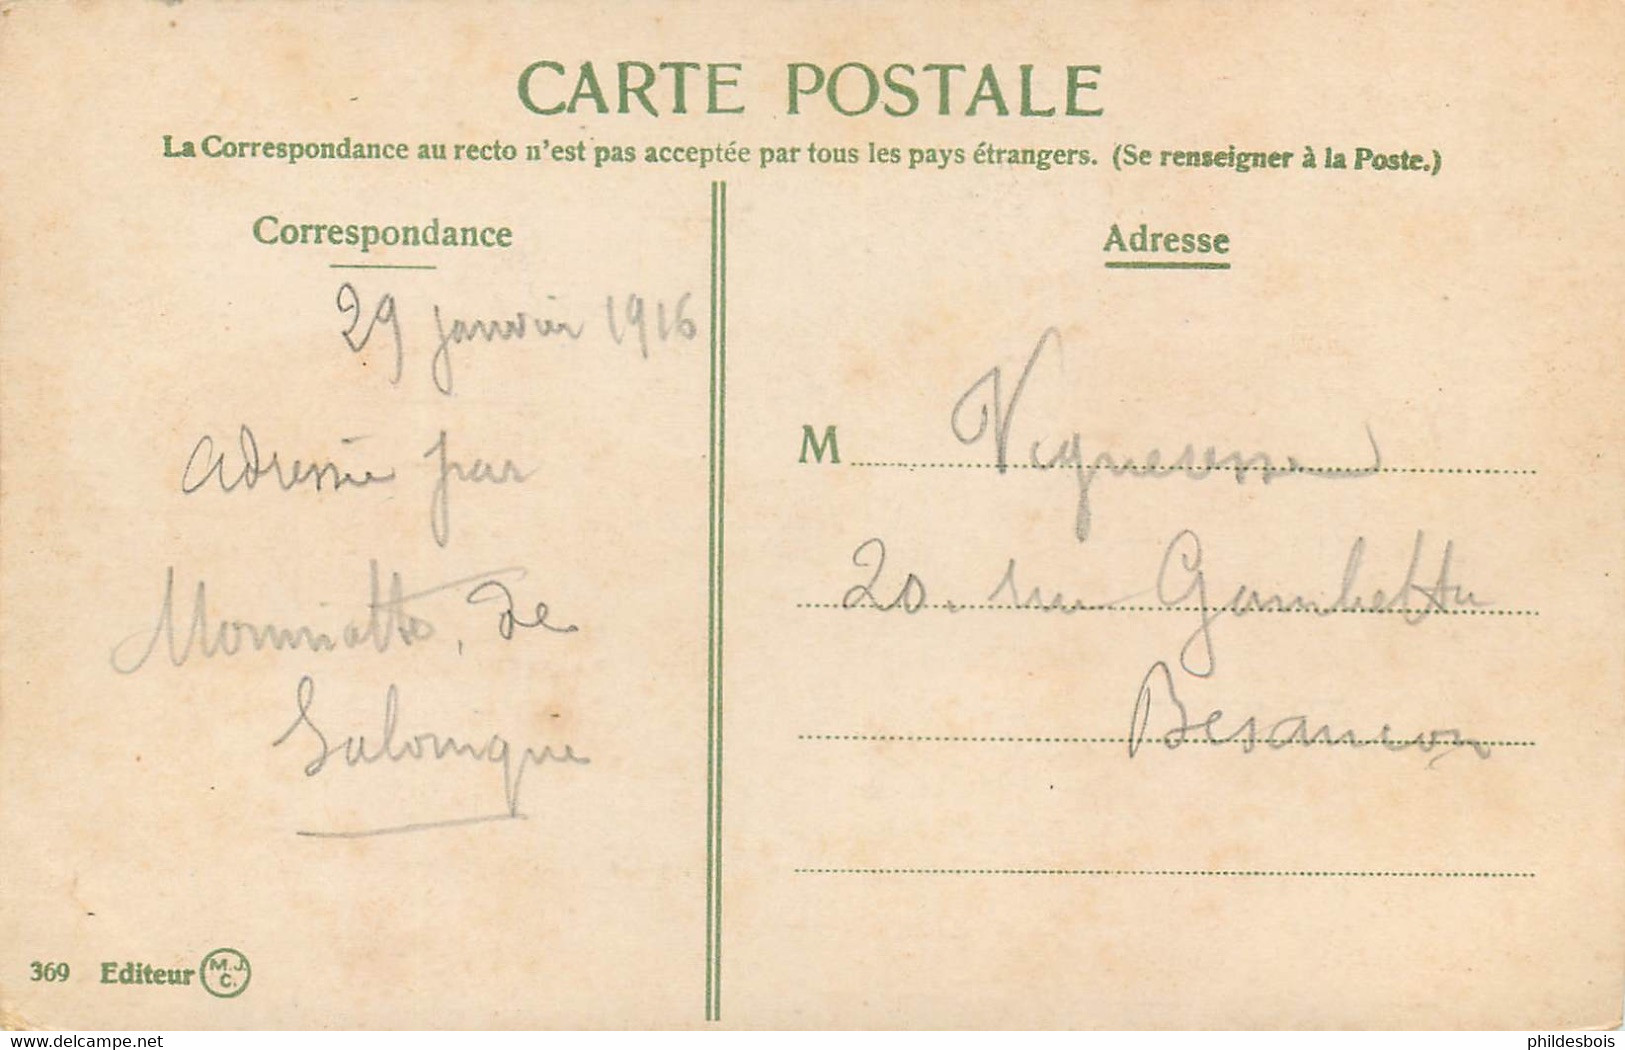 CARTE POSTALE
La Correspondance au recto n'est pas acceptée par tous les pays étrangers. (Se renseigner à la Poste.)
Correspondance
29 janvier 1916
adressée par
de
Salonique
Adresse
M
20, rue Gambetta
Besancon
369 Editeur M.J.C.
www.delcampe.net
phildesbois